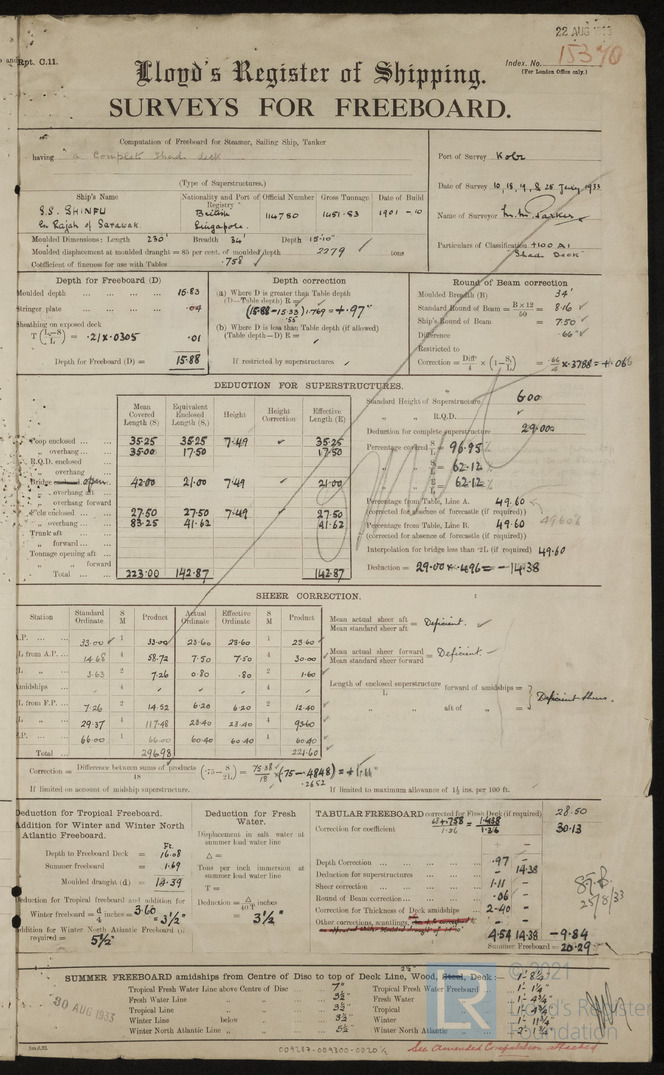 22 AUG 1933
Rpt. C.11.
Index. No. 15370
(For London Office only.)
Lloyd's Register of Shipping.
SURVEYS FOR FREEBOARD.
Computation of Freeboard for Steamer, Sailing Ship, Tanker
having a Complete Shade deck
(Type of Superstructures.)
Port of Survey Kobe
Date of Survey 10, 15, 9, & 25. July 1933
Name of Surveyor
Particulars of Classification +100 A1
"Shade Deck"
Ship's Name
Nationality and Port of Registry
Official Number
Gross Tonnage
Date of Build
S.S. SHINFU
ex Rajah of Sarawak.
British
Singapore.
114780
1451.83
1901-10
Moulded Dimensions: Length 230' Breadth 34' Depth 15'-10"
Moulded displacement at moulded draught = 85 per cent. of moulded depth 2279 tons
Coefficient of fineness for use with Tables .758
Depth for Freeboard (D)
Moulded depth 15.83
Stringer plate .04
Sheathing on exposed deck
T (L-S/L) = .21 x .0305 .01
Depth for Freeboard (D) = 15.88
Depth correction
(a) Where D is greater than Table depth
(D-Table depth) R =
(15.88-15.33) 1.769 = +.97"
.55
(b) Where D is less than Table depth (if allowed)
(Table depth-D) R =
If restricted by superstructures
Round of Beam correction
Moulded Breadth (B) 34'
Standard Round of Beam = B×12/50 = 8.16
Ship's Round of Beam = 7.50
Difference .66
Restricted to
Correction = Diff/4 × (1-S/L) = .66/4 x .3788 = +.06
DEDUCTION FOR SUPERSTRUCTURES.
Mean Covered Length (S)
Equivalent Enclosed Length (S1)
Height
Height Correction
Effective Length (E)
Poop enclosed 35.25 35.25 7.49 35.25
" overhang 35.00 17.50 17.50
R.Q.D. enclosed
" overhang
Bridge open 42.00 21.00 7.49 21.00
" overhang aft
" overhang forward
F'cle enclosed 27.50 27.50 7.49 27.50
" overhang 83.25 41.62 41.62
Trunk aft
" forward
Tonnage opening aft
" " forward
Total 223.00 142.87 142.87
Standard Height of Superstructure 6.00
" " R.Q.D.
Deduction for complete superstructure 29.000
Percentage covered S/L = 96.95%
" " = 62.12%
" " = 62.12%
Percentage from Table, Line A. 49.60
(corrected for absence of forecastle (if required))
Percentage from Table, Line B. 49.60
49.60%
(corrected for absence of forecastle (if required))
Interpolation for bridge less than .2L (if required) 49.60
Deduction = 29.00 x .496 = -14.38
SHEER CORRECTION.
Station
Standard Ordinate
S M
Product
Actual Ordinate
Effective Ordinate
S M
Product
A.P. 33.00 1 33.00 23.60 23.60 1 23.60
L from A.P. 14.68 4 58.72 7.50 7.50 4 30.00
L " 3.63 2 7.26 0.80 .80 2 1.60
Amidships 4 4
L from F.P. 7.26 2 14.52 6.20 6.20 2 12.40
L " 29.37 4 117.48 23.40 23.40 4 93.60
F.P. 66.00 1 66.00 60.40 60.40 1 60.40
Total 296.98 221.60
Mean actual sheer aft / Mean standard sheer aft = Deficient.
Mean actual sheer forward / Mean standard sheer forward = Deficient.
Length of enclosed superstructure / L forward of amidships =
" aft of " =
Deficient sheer.
Correction = Difference between sums of products / 18 (.75 - S/2L) = 75.38/18 x (.75-.4848) = +1.11"
.2652
If limited on account of midship superstructure.
If limited to maximum allowance of 1½ ins. per 100 ft.
Deduction for Tropical Freeboard.
Addition for Winter and Winter North Atlantic Freeboard.
Ft.
Depth to Freeboard Deck = 16.08
Summer freeboard = 1.69
Moulded draught (d) = 14.39
Deduction for Tropical freeboard and addition for
Winter freeboard = d/4 inches = 3.60
= 3½"
Addition for Winter North Atlantic Freeboard (if required) = 5½"
Deduction for Fresh Water.
Displacement in salt water at summer load water line
Δ =
Tons per inch immersion at summer load water line
T =
Deduction = Δ/40T inches
= 3½"
TABULAR FREEBOARD corrected for Flush Deck (if required) 28.50
Correction for coefficient .68+.758/1.36 = 1.438/1.36 30.13
+ -
Depth Correction .97 -
Deduction for superstructures - 14.38
Sheer correction 1.11 -
Round of Beam correction .06 -
Correction for Thickness of Deck amidships 2.40 -
Other corrections, scantlings,
4.54 14.38 -9.84
Summer Freeboard = 20.29
25/8/33
SUMMER FREEBOARD amidships from Centre of Disc to top of Deck Line, Wood, Steel, Deck:- 1'- 8¼"
Tropical Fresh Water Line above Centre of Disc 7" Tropical Fresh Water Freeboard 1'- 1¼"
Fresh Water Line " " 3½" Fresh Water " 1'- 4¾"
Tropical Line " " 3½" Tropical " 1'- 4¾"
Winter Line below " 3½" Winter " 1'- 11¾"
Winter North Atlantic Line " " 5½" Winter North Atlantic " 2'- 1¾"
30 AUG 1933
009287-009300-0020¼
See Amended Computation attached
LR
© 2021
Lloyd's Register
Foundation